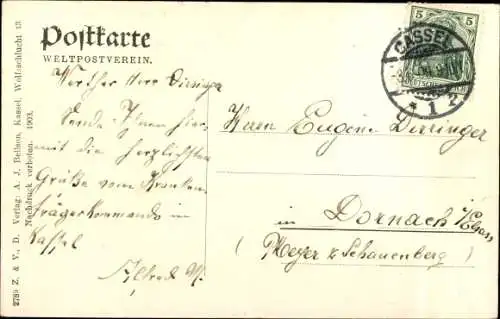 Postkarte
WELTPOSTVEREIN.
Werther Herr Dirringer
Sende Ihnen hier
mit die herzlichsten
Grüße vom Kranken
trägerkommando in
Kassel
Alfred W.
5 5
CASSEL
* 1 *
Herrn Eugen Dirringer
in Dornach i/Elsass
(Meyer & Schauenberg)
2789 Z. & V., D. Verlag: A. J. Bellson, Kassel, Wolfsschlucht 13
Nachdruck verboten. 1903.